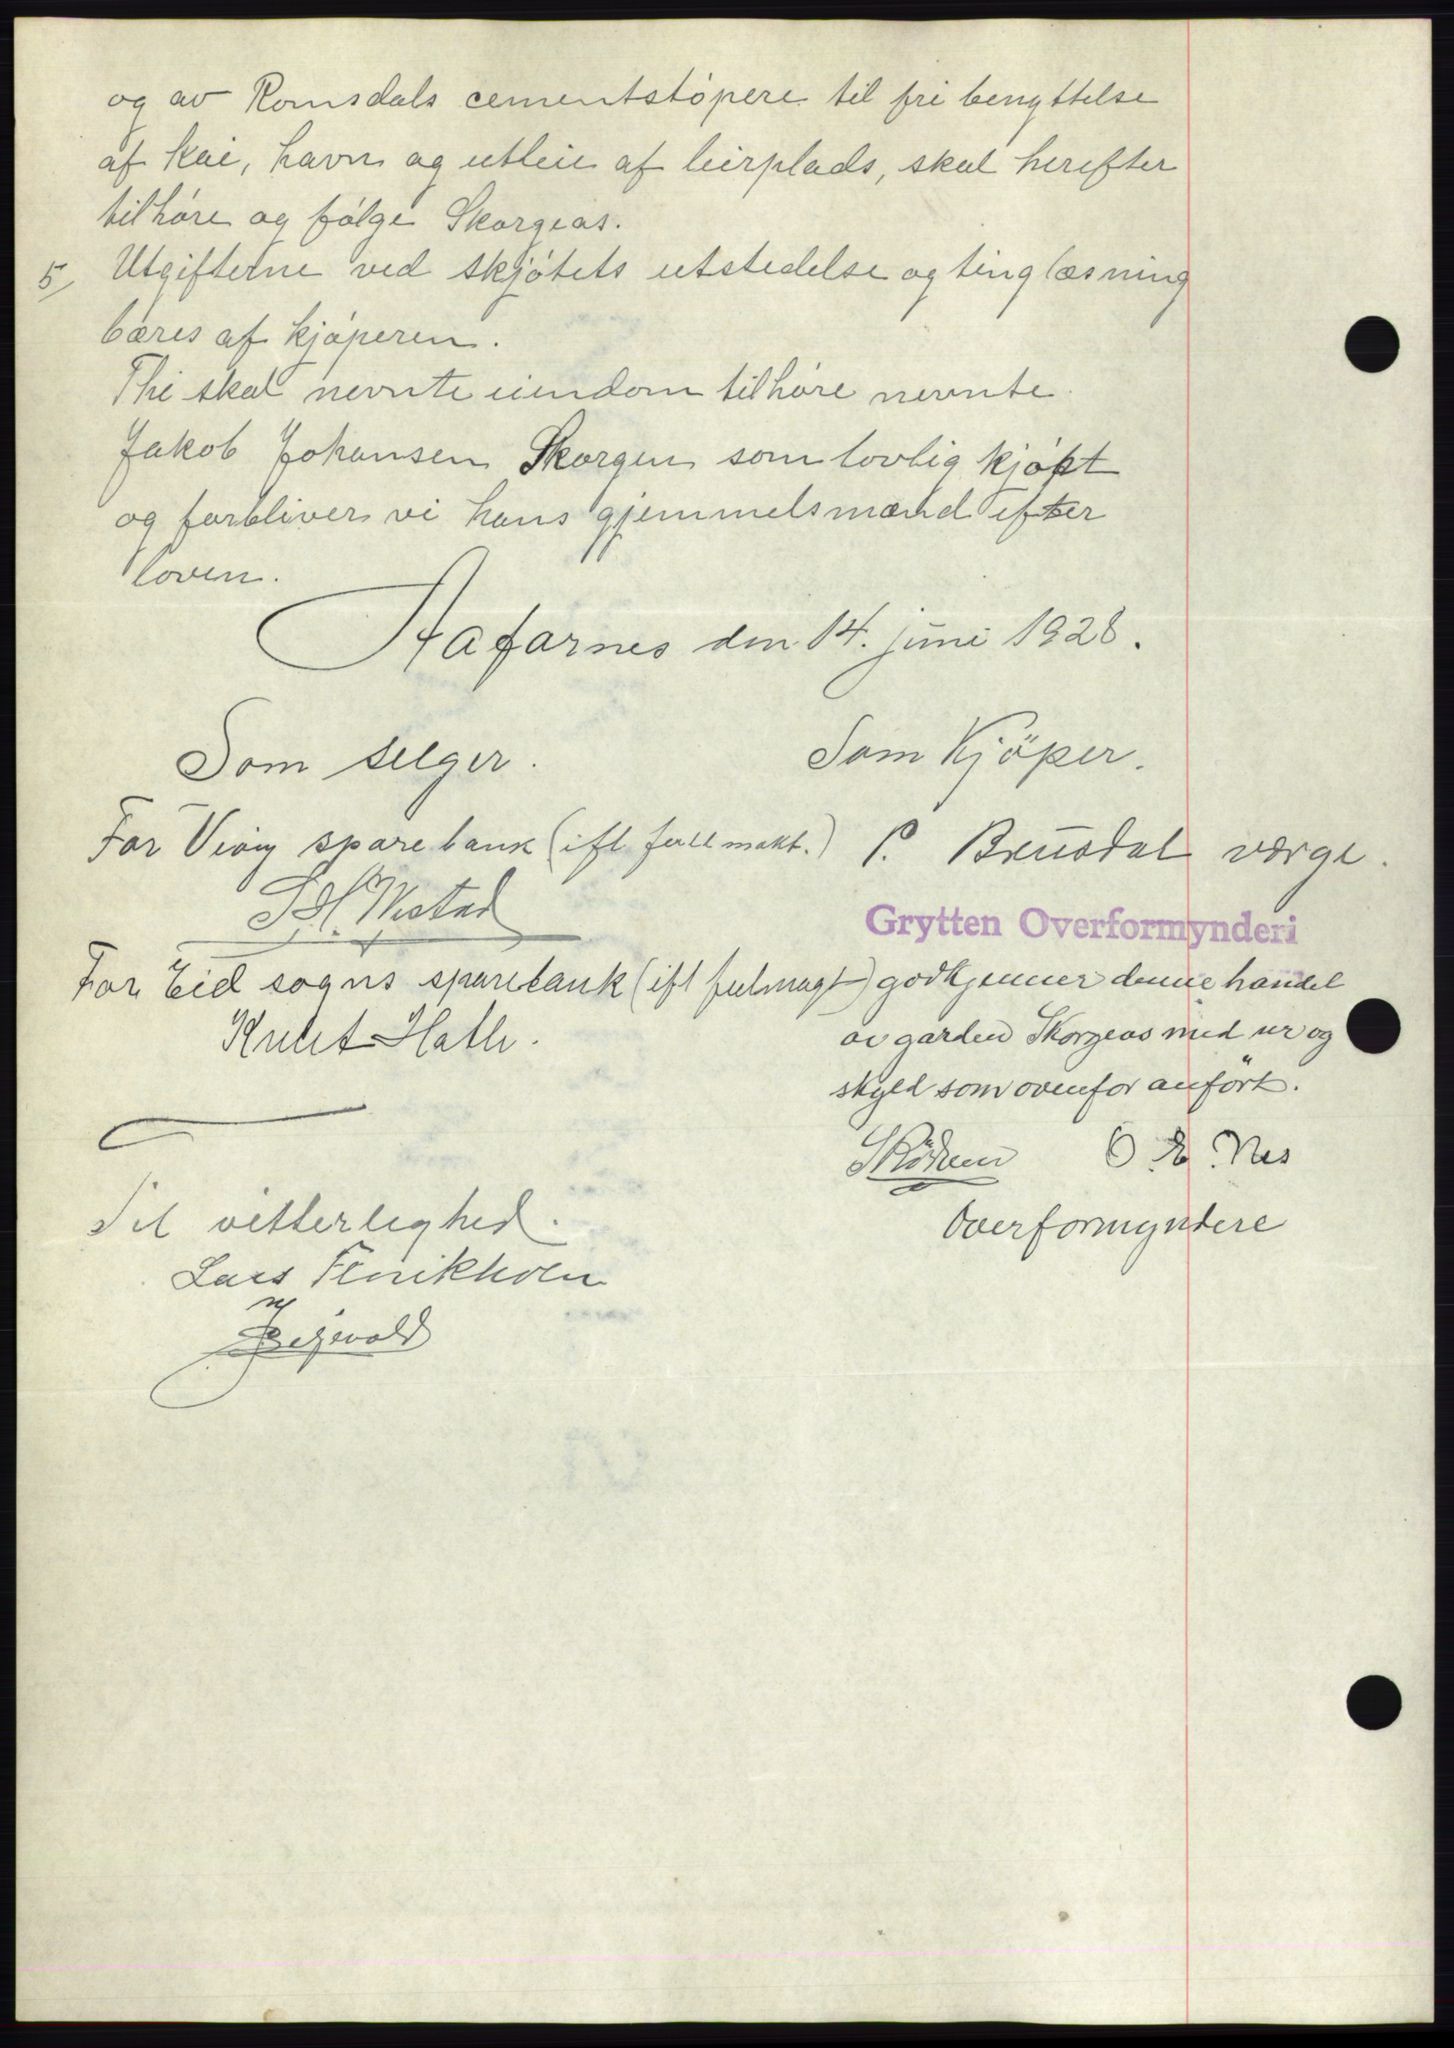 og av Romsdals cementstöpere til fri benyttelse
af kai, havn og utleie af leirplads, skal herefter
tilhöre og fölge Skorgeas.
5/ Utgifterne ved skjötets utstedelse og tinglæsning
bæres af kjöperen.
Thi skal nevnte eiendom tilhöre nevnte
Jakob Johansen Skorgen som lovlig kjöpt
og forbliver vi hans hjemmelsmænd efter
loven.
Hafarnes den 14. juni 1928.
Som selger.
Som Kjöper.
For Viöy sparebank (ifl fullmakt.)
P. Brusdal verge.
Grytten Overformynderi
For Eid sogns sparebank (ifl fulmagt)
godkjenner denne handel
Knut Hatle.
av garden Skorgeas med ur og
skyld som ovenfor anfört.
O. E. Nes
Overformyndere
Til vitterlighed.
Lars Flenikholm